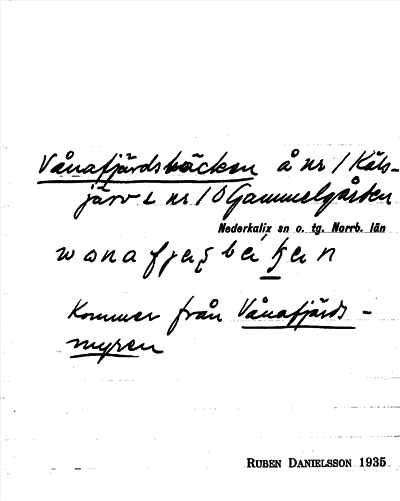 Vånafjärdsbäcken å nr 1 Räks-
järv L nr 10 Gammelgården
Nederkalix sn o. tg. Norrb. län
Kommer från Vånafjärds-
myren
RUBEN DANIELSSON 1935